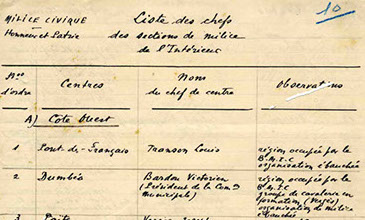 MILICE CIVIQUE
Honneur et Patrie
Liste des chefs
des sections de milice
de l'Intérieur
10
Nos d'ordre
Centres
Noms du chef de centre
Observations
A) Côte Ouest
1 Pont des-Français Transon Louis région occupée par le
B.M.I.C
organisation ébauchée
2 Dumbéa Bardou Victorien région occupée par le
(Président de la Com° B.M.I.C
Municipale) groupe de cavalerie en
formation
organisation de milice
ébauchée
3 Païta